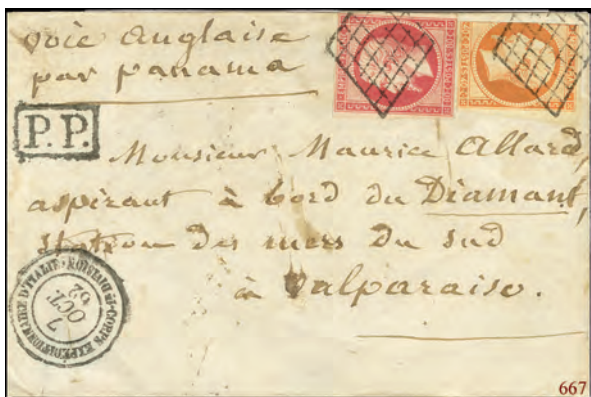 voie anglaise
par panama
P.P.
Monsieur Maurice Allard,
aspirant à bord du Diamant,
Station des mers du sud
à Valparaiso.
CORPS EXPÉDITIONNAIRE D'ITALIE
DIVISION
7
OCT.
62
667